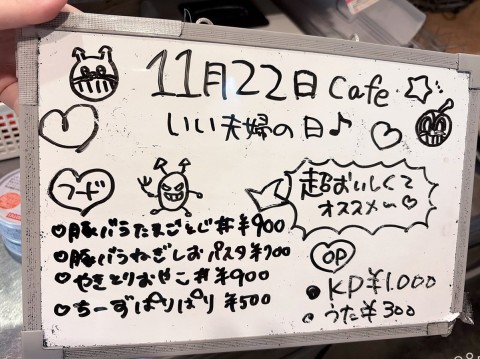 11月22日 Cafe
いい夫婦の日♪
フード
超おいしくて
オススメ〜♡
♡豚バラたまごとじ丼 ¥900
♡豚バラねぎしおパスタ ¥700
♡やきとりおやこ丼 ¥900
♡ちーずぱりぱり ¥500
OP
KP ¥1.000
うた ¥300